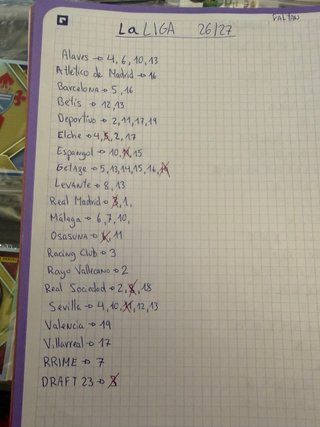 FALTAN
LaLIGA 26/27
Alaves → 4, 6, 10, 13
Atlético de Madrid → 16
Barcelona → 5, 16
Betis → 12, 13
Deportivo → 2, 11, 17, 19
Elche → 4, 5, 2, 17
Espanyol → 10, 11, 15
Getafe → 5, 13, 14, 15, 16, 19
Levante → 8, 13
Real Madrid → 3, 1,
Málaga → 6, 7, 10,
Osasuna → 6, 11
Racing Club → 3
Rayo Vallecano → 2
Real Sociedad → 2, 8, 18
Sevilla → 4, 10, 11, 12, 13
Valencia → 19
Villarreal → 17
RRIME → 7
DRAFT 23 → 3